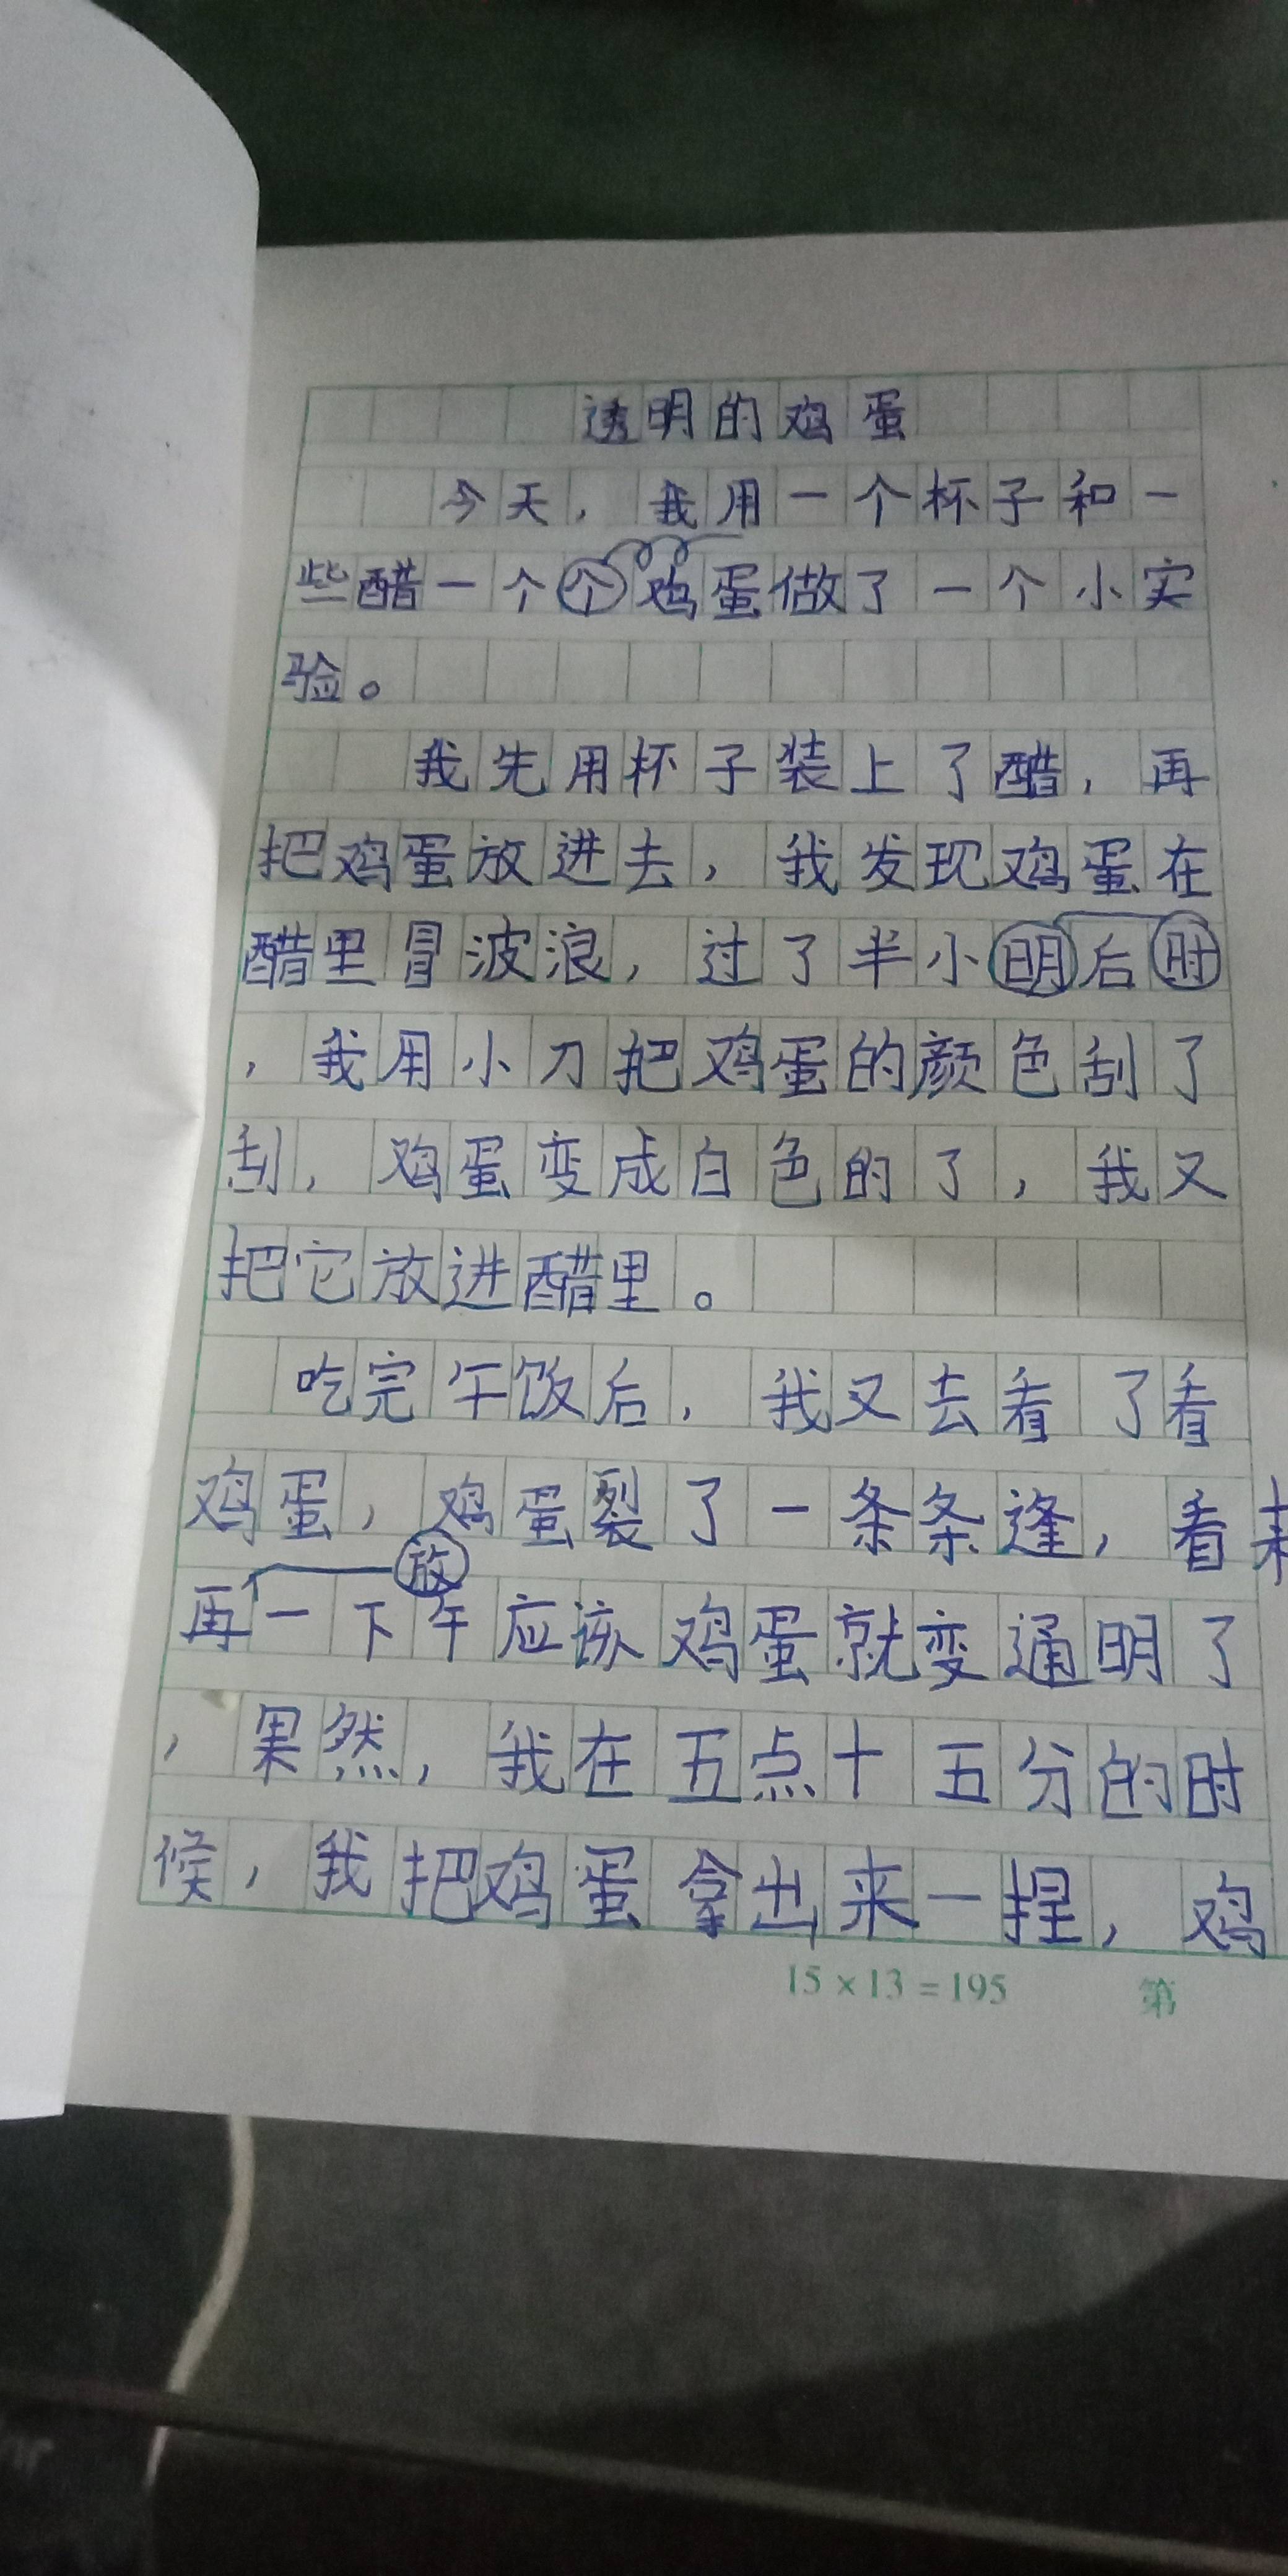 透明的鸡蛋
今天，我用一个杯子和一
些醋一个个鸡蛋做了一个小实
验。
我先用杯子装上了醋，再
把鸡蛋放进去，我发现鸡蛋在
醋里冒波浪，过了半小明后时
，我用小刀把鸡蛋的颜色刮了
刮，鸡蛋变成白色的了，我又
把它放进醋里。
吃完午饭后，我又去看了看
鸡蛋，鸡蛋裂了一条条逢，看来
放
再一下午应该鸡蛋就变通明了
，果然，我在五点十五分的时
候，我把鸡蛋拿出来一捏，鸡
15×13=195 第